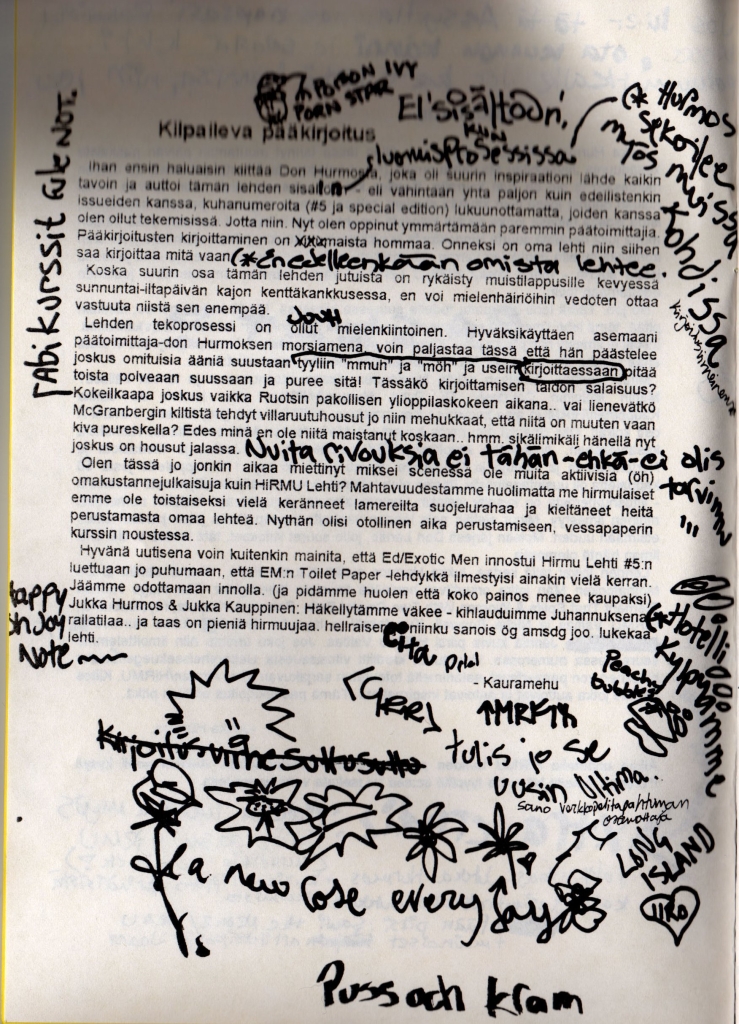 POISON IVY
PORN STAR
Kilpaileva pääkirjoitus
KUN
luomisprosessissa
(* Hurmos
sekoilee
myös
muissa
tohdissa
Abikurssit rule NOT.
Ihan ensin haluaisin kiittää Don Hurmosta, joka oli suurin inspiraationi lähde kaikin
tavoin ja auttoi tämän lehden - eli vähintään yhtä paljon kuin edellistenkin
issueiden kanssa, kuhanumeroita (#5 ja special edition) lukuunottamatta, joiden kanssa
olen ollut tekemisissä. Jotta niin. Nyt olen oppinut ymmärtämään paremmin päätoimittajia.
Pääkirjoitusten kirjoittaminen on maista hommaa. Onneksi on oma lehti niin siihen
saa kirjoittaa mitä vaan (* En edelleenkään omista lehteä.
Koska suurin osa tämän lehden jutuista on rykäisty muistilappusille kevyessä
sunnuntai-iltapäivän kajon kenttäkankkusessa, en voi mielenhäiriöihin vedoten ottaa
vastuuta niistä sen enempää.
Lehden tekoprosessi on ollut mielenkiintoinen. Hyväksikäyttäen asemaani
päätoimittaja-don Hurmoksen morsiamena, voin paljastaa tässä että hän päästelee
joskus omituisia ääniä suustaan tyyliin "mmuh" ja "möh" ja usein kirjoittaessaan pitää
toista polveaan suussaan ja puree sitä! Tässäkö kirjoittamisen taidon salaisuus?
Kokeilkaapa joskus vaikka Ruotsin pakollisen ylioppilaskokeen aikana.. vai lienevätkö
McGranbergin kiltistä tehdyt villaruutuhousut jo niin mehukkaat, että niitä on muuten vaan
kiva pureskella? Edes minä en ole niitä maistanut koskaan.. hmm. sikälimikäli hänellä nyt
joskus on housut jalassa. Muita rivouksia ei tähän -ehkä-ei olis
tarvinnu
!!!
Olen tässä jo jonkin aikaa miettinyt miksei scenessä ole muita aktiivisia (öh)
omakustannejulkaisuja kuin HiRMU Lehti? Mahtavuudestamme huolimatta me hirmulaiset
emme ole toistaiseksi vielä keränneet lamereilta suojelurahaa ja kieltäneet heitä
perustamasta omaa lehteä. Nythän olisi otollinen aika perustamiseen, vessapaperin
kurssin noustessa.
Hyvänä uutisena voin kuitenkin mainita, että Ed/Exotic Men innostui Hirmu Lehti #5:n
luettuaan jo puhumaan, että EM:n Toilet Paper -lehdykkä ilmestyisi ainakin vielä kerran.
Jäämme odottamaan innolla. (ja pidämme huolen että koko painos menee kaupaksi)
Jukka Hurmos & Jukka Kauppinen: Häkellytämme väkee - kihlauduimme Juhannuksena
railatilaa.. ja taas on pieniä hirmuujaa. hellraiser niinku sanois ög amsdg joo. lukekaa
lehti.
Happy
Note
- Kauramehu
Hotelli
Kylpyamme
Peachy
bubbles
Kirjoitusvirhesuttusutto
tulis jo se
uusin Ultima.
LONG
ISLAND
TIRO
a new rose every day
Puss och kram